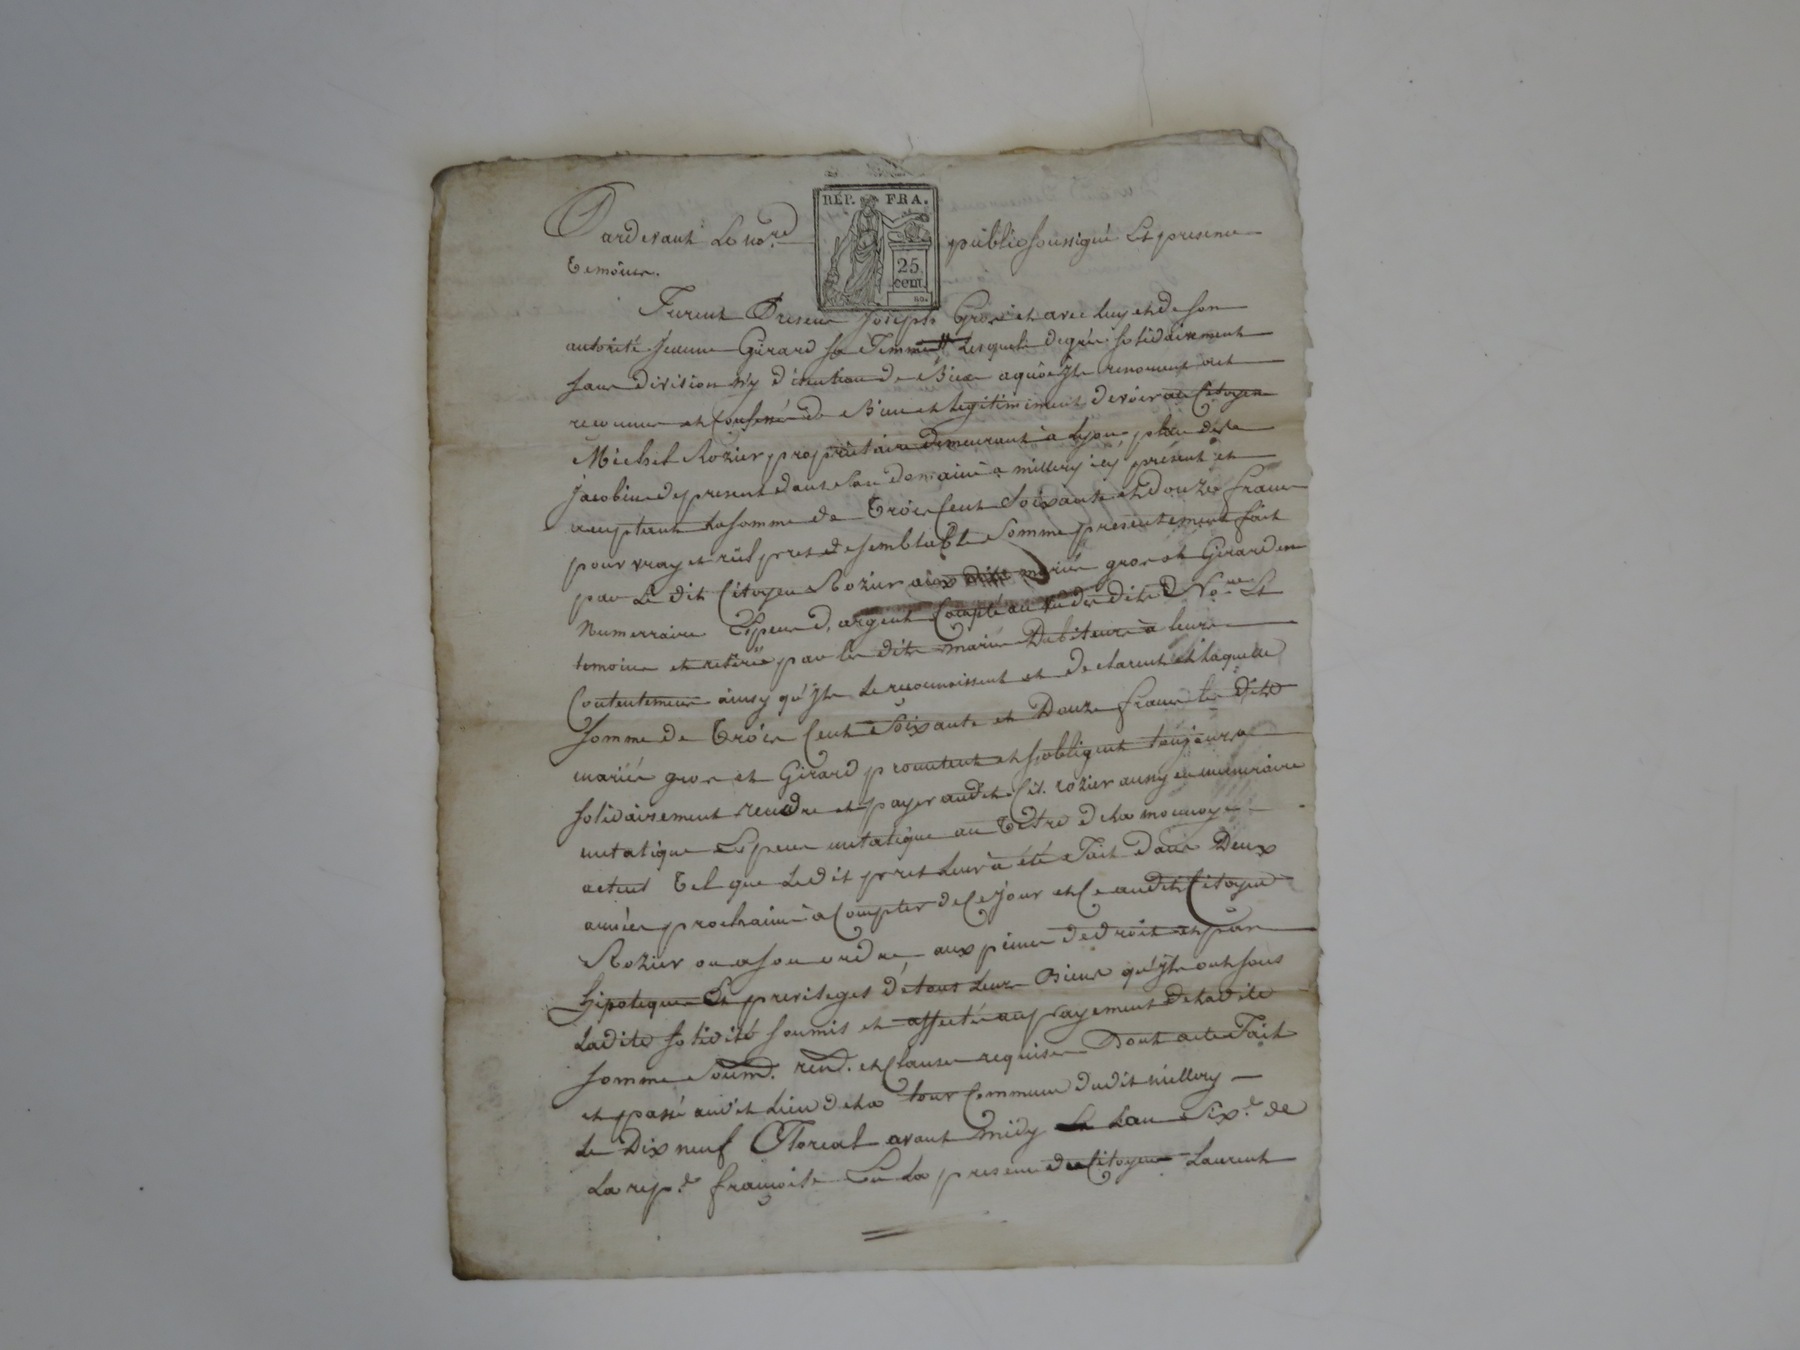 Pardevant Le no.re public soussigné Et presence
temoins.
RÉP. FRA.
25
cent.
Furent Presens Joseph Gros et avec luy et de son
autorité Jeanne Girard sa Femme Lesquels de gré solidairement
sans division n'y discution de Biens a quoi yls renoncent ont
reconnu et Confessé de Bien et legitimement devoir au Citoyen
Michel Rozier propriétaire demeurant à Lyon, place des
Jacobins de present dans son domaine a millery icy présent et
acceptant La somme de Trois Cent Soixante et douze francs
pour vray et réel pret de semblable Somme presentement fait
par Le dit Citoyen Rozier aux dits mariés gros et Girard en
Numerraire Espece d'argent Compté au Vu des dits No.re Et
temoins et retirée par les dits mariés Debiteurs à leurs
Contentement ainsy qu'yls Le reconnoissent et declarent et laquelle
somme de Trois Cent Soixante et Douze francs les dits
mariés gros et Girard promettent et s'obligent toujours
solidairement rendre et payer audit Cit. rozier aussy en numeraire
metalique Espece metalique au Titre de la monnoye
actuel Tel que Ledit pret Leur à été Fait dans Deux
années prochaines à Compter de Ce jour et Ce audit Citoyen
Rozier ou a son ordre aux peines de droit et par
hipoteque Et privileges de tous Leurs Biens qu'yls ont sous
Ladite solidité soumis et affecté au payement de Ladite
somme Soum. ren. et Clauses requises Dont acte Fait
et passé audit Lieu de La tour Commune dudit millery
Le Dix neuf Floreal avant midy L'an Six.e de
La rep.e françoise En La presence des Citoyens Laurent